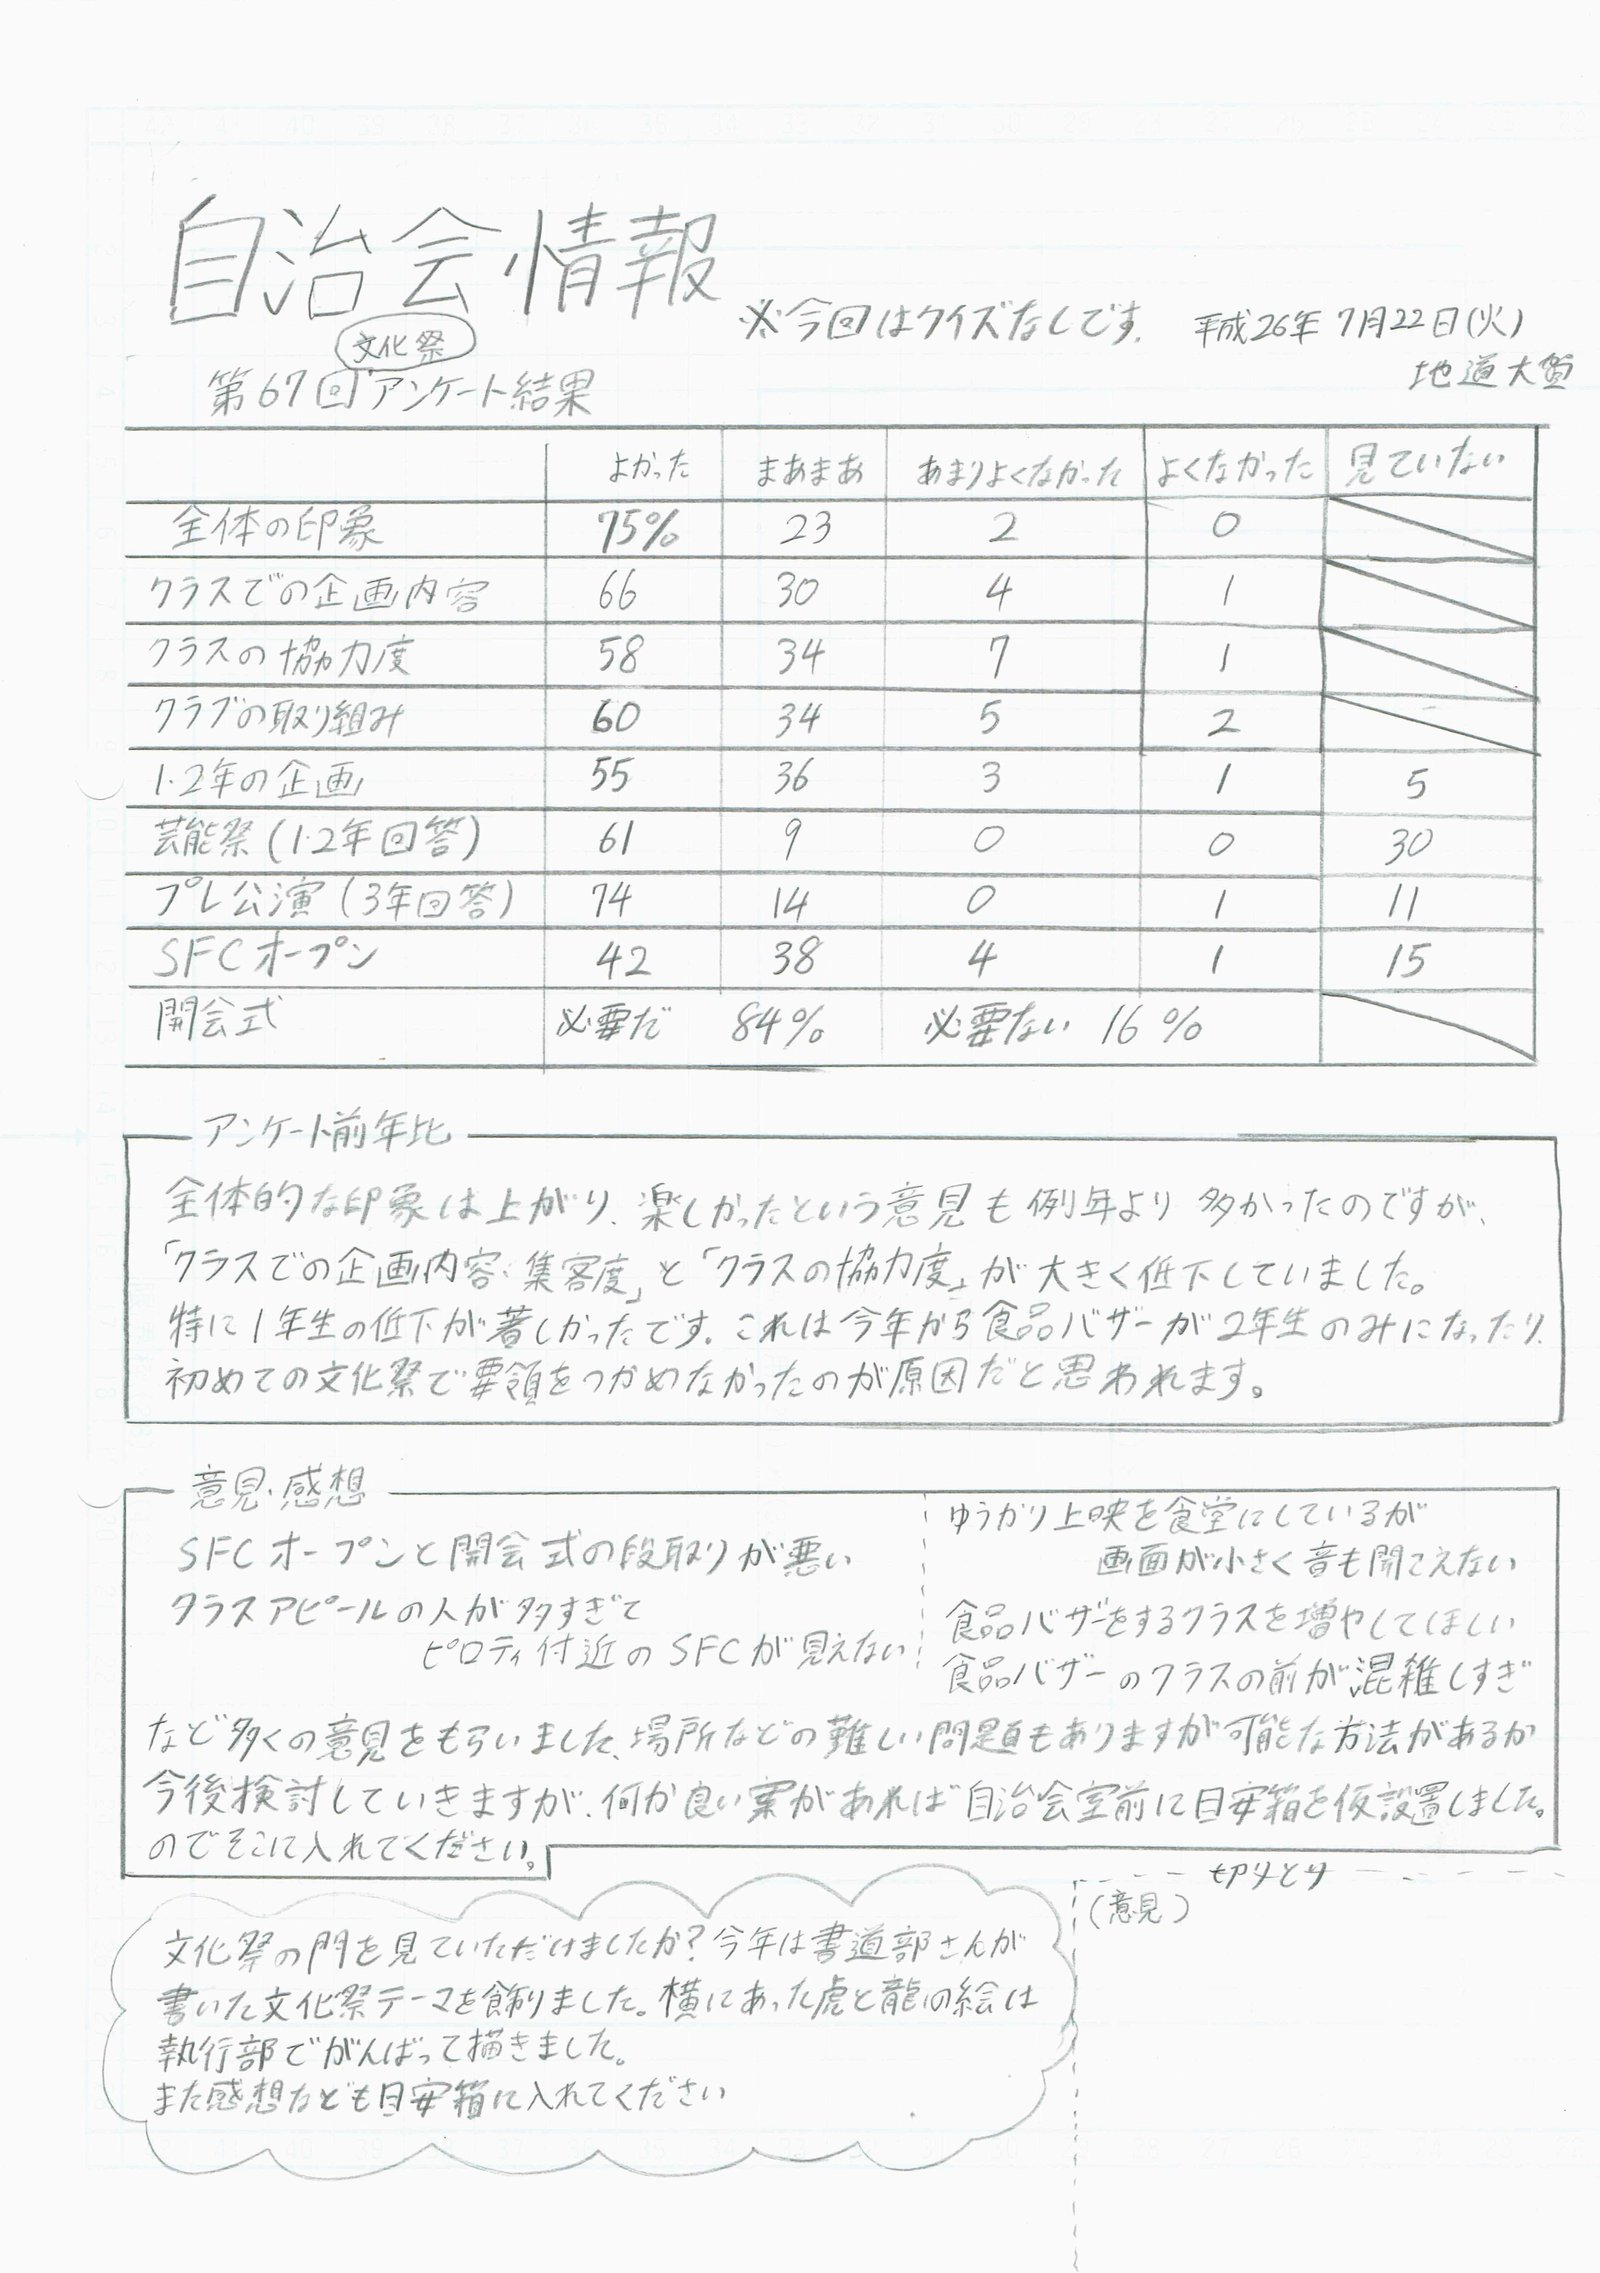 自治会情報
※今回はクイズなしです. 平成26年 7月22日(火)
地道大賀
文化祭
第67回アンケート結果
よかった まあまあ あまりよくなかった よくなかった 見ていない
全体の印象 75% 23 2 0
クラスでの企画内容 66 30 4 1
クラスの協力度 58 34 7 1
クラブの取り組み 60 34 5 2
1·2年の企画 55 36 3 1 5
芸能祭(1·2年回答) 61 9 0 0 30
プレ公演(3年回答) 74 14 0 1 11
SFCオープン 42 38 4 1 15
開会式 必要だ 84% 必要ない 16%
アンケート前年比
全体的な印象は上がり、楽しかったという意見も例年より多かったのですが、
「クラスでの企画内容·集客度」と「クラスの協力度」が大きく低下していました。
特に1年生の低下が著しかったです。これは今年から食品バザーが2年生のみになったり、
初めての文化祭で要領をつかめなかったのが原因だと思われます。
意見·感想
SFCオープンと開会式の段取りが悪い
クラスアピールの人が多すぎて
ピロティ付近のSFCが見えない
ゆうかり上映を食堂にしているが
画面が小さく音も聞こえない
食品バザーをするクラスを増やしてほしい
食品バザーのクラスの前が混雑しすぎ
など多くの意見をもらいました、場所などの難しい問題もありますが可能な方法があるか
今後検討していきますが、何か良い案があれば自治会室前に目安箱を仮設置しました。
のでそこに入れてください。
切りとり
(意見)
文化祭の門を見ていただけましたか?今年は書道部さんが
書いた文化祭テーマを飾りました。横にあった虎と龍の絵は
執行部でがんばって描きました。
また感想なども目安箱に入れてください